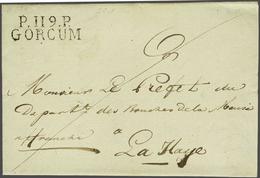 P.119.P.
GORCUM
Monsieur Le Prefet du
Depart.t des Bouches de la Meuse
affranchie à
La Haye